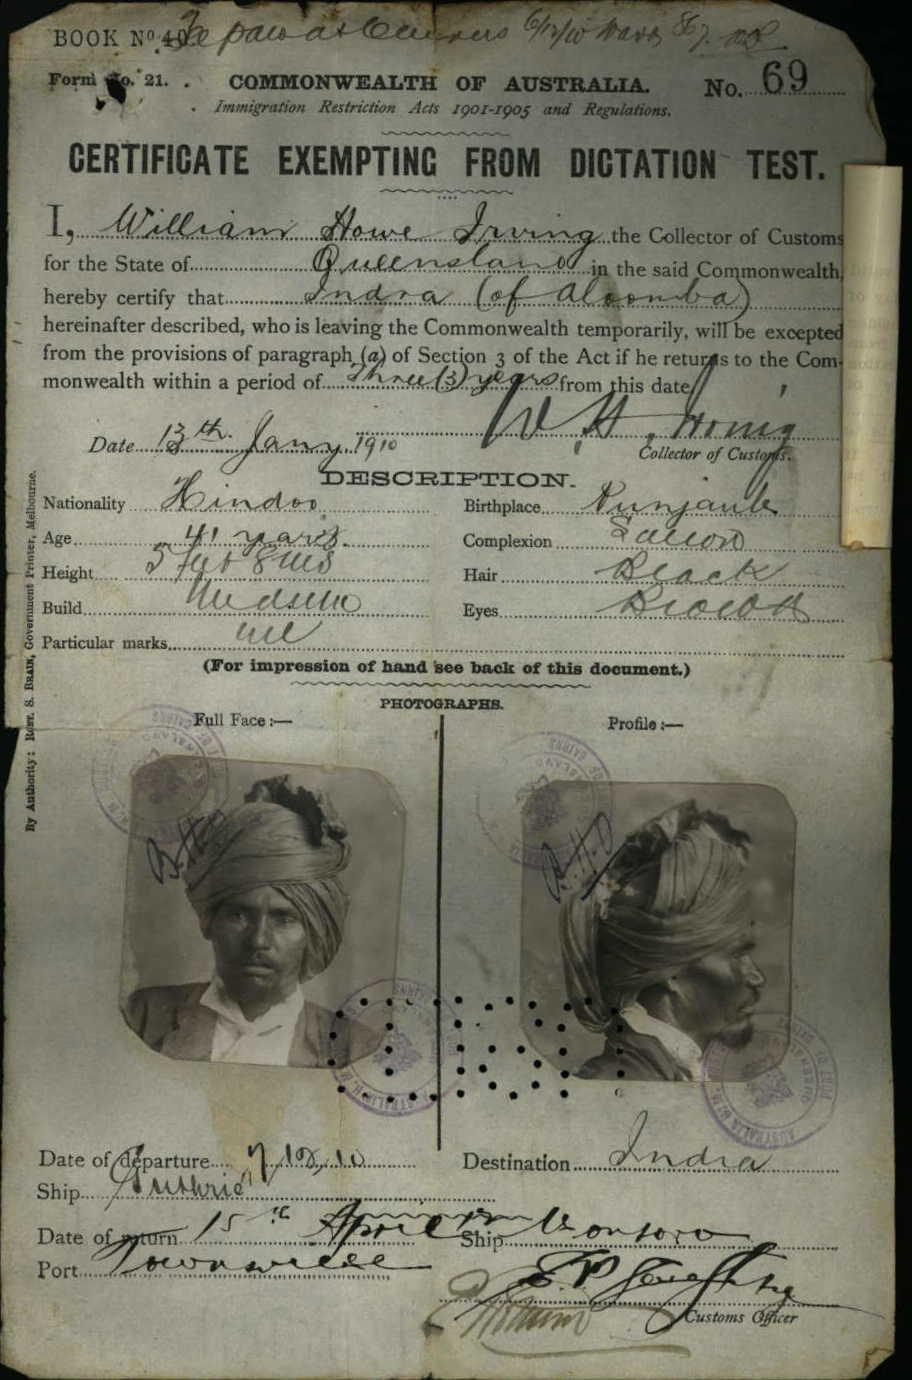 BOOK No 40
Form No. 21. COMMONWEALTH OF AUSTRALIA. No. 69
Immigration Restriction Acts 1901-1905 and Regulations.
CERTIFICATE EXEMPTING FROM DICTATION TEST.
I, William Howe Irving the Collector of Customs
for the State of Queensland in the said Commonwealth,
hereby certify that Indra (of Aloomba)
hereinafter described, who is leaving the Commonwealth temporarily, will be excepted
from the provisions of paragraph (a) of Section 3 of the Act if he returns to the Com-
monwealth within a period of Three (3) years from this date
W. H. Irving
Date 13th Jany 1910 Collector of Customs.
DESCRIPTION.
Nationality Hindoo Birthplace Punjaub
Age 41 years. Complexion
Height 5 feet 8 ins Hair Black
Build Medium Eyes Brown
Particular marks nil
(For impression of hand see back of this document.)
PHOTOGRAPHS.
Full Face :— Profile :—
Date of departure 7/12/10 Destination India
Ship Guthrie
Date of return 15th April Ship
Port Townsville
Customs Officer
By Authority: ROBT. S. BRAIN, Government Printer, Melbourne.